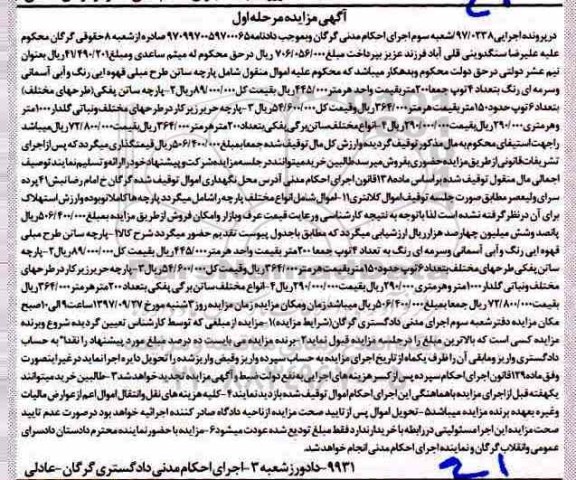 آگهی مزایده مرحله اول
در پرونده اجرایی ۹۷/۰۲۳۸ شعبه سوم اجرای احکام مدنی گرگان و بموجب دادنامه ۹۷۰۹۹۷۰۰۵۹۷۰۰۰۶۵ صادره از شعبه ۸ حقوقی گرگان محکوم
علیه علیرضا سنگدوینی قلی آباد فرزند عزیز بپرداخت مبلغ ۷۰۶/۰۵۶/۰۰۰ ریال در حق محکوم له میثم ساعدی و مبلغ ۴۱/۴۹۰/۲۰۱ ریال بعنوان
نیم عشر دولتی در حق دولت محکوم وبدهکار میباشد که محکوم علیه اموال منقول شامل پارچه ساتن طرح مبلی قهوه ایی رنگ و آبی آسمانی
وسرمه ای رنگ بتعداد ۴ توپ جمعا ۲۰۰متر بقیمت هرمتر ۴۴۵/۰۰۰ریال بقیمت کل ۸۹/۰۰۰/۰۰۰ریال ۲-پارچه ساتن پفکی (طرحهای مختلف)
بتعداد ۶ توپ حدود ۱۵۰متر بقیمت هرمتر ۳۶۴/۰۰۰ریال وقیمت کل ۵۴/۶۰۰/۰۰۰ریال ۳-پارچه حریر زیرکار در طرحهای مختلف ونباتی گلدار ۱۰۰۰متر
وهرمتری ۲۹۰/۰۰۰ریال بقیمت ۲۹۰/۰۰۰/۰۰۰ریال ۴-انواع مختلف ساتن برگی پفکی بتعداد ۲۰۰متر هرمتر ۳۶۴/۰۰۰ریال بقیمت ۷۲/۸۰۰/۰۰۰ریال میباشد
راجهت استیفای محکوم به مال مذکور توقیف گردیده وارزش کل مال توقیف شده جمعا بمبلغ ۵۰۶/۴۰۰/۰۰۰ریال قیمتگذاری میگردد که پس از اجرای
تشریفات قانونی از طریق مزایده حضوری بفروش میرسد طالبین خرید میتوانند در جلسه مزایده شرکت و پیشنهاد خود را ارائه وتسلیم نمایند توصیف
اجمالی مال منقول توقیف شده براساس ماده ۱۳۸ قانون اجرای احکام مدنی آدرس محل نگهداری اموال توقیف شده گرگان خ امام رضا نبش ۴۱ پرده
سرای ولیعصر مطابق صورت جلسه توقیف اموال کلانتری ۱۱-اموال شامل انواع مختلف پارچه را شامل میگردد پارچه ها کاملا نوبوده وارزش استهلاک
برای آن در نظر گرفته نشده است لذا باتوجه به نتیجه کارشناسی ورعایت قیمت عرف وبازار وامکان فروش از طریق مزایده بمبلغ ۵۰۶/۴۰۰/۰۰۰ریال
پانصد وشش میلیون چهارصد هزارریال ارزشیابی میگردد که مطابق باجدول پیوست تقدیم حضور میگردد شرح کالا ۱-پارچه ساتن طرح مبلی
قهوه ایی رنگ و آبی آسمانی وسرمه ای رنگ به تعداد ۴ توپ جمعا ۲۰۰متر بقیمت واحد هرمتر ۴۴۵/۰۰۰ریال بقیمت کل ۸۹/۰۰۰/۰۰۰ریال ۲-پارچه
ساتن پفکی طرحهای مختلف بتعداد ۶ توپ حدود ۱۵۰متر بقیمت هرمتر ۳۶۴/۰۰۰ریال وقیمت کل ۵۴/۶۰۰/۰۰۰ریال ۳-پارچه حریر زیرکار در طرحهای
مختلف ونباتی گلدار ۱۰۰۰متر وهرمتری ۲۹۰/۰۰۰ریال بقیمت ۲۹۰/۰۰۰/۰۰۰ریال ۴-انواع مختلف ساتن برگی پفکی بتعداد ۲۰۰متر هرمتر ۳۶۴/۰۰۰ریال
بقیمت ۷۲/۸۰۰/۰۰۰ ریال جمعا بمبلغ ۵۰۶/۴۰۰/۰۰۰ریال میباشد زمان ومکان مزایده زمان مزایده روز ۳شنبه مورخ ۱۳۹۷/۰۹/۲۷ ساعت ۹ الی ۱۰صبح
مکان مزایده دفتر شعبه سوم اجرای مدنی دادگستری گرگان (شرایط مزایده) ۱-مزایده از مبلغی که توسط کارشناس تعیین گردیده شروع وبرنده
مزایده کسی است که بالاترین مبلغ را در جلسه مزایده قبول نماید ۲-برنده مزایده می بایست ده درصد مبلغ مورد پیشنهاد را نقدا" به حساب
دادگستری واریز ومابقی آن را ظرف یکماه از تاریخ اجرای مزایده به حساب سپرده واریز وقبض واریز شده را تحویل دایره اجرا نماید در غیر اینصورت
وفق ماده ۱۲۹ قانون اجرای احکام سپرده پس از کسر هزینه های اجرایی به نفع دولت ضبط و آگهی مزایده تجدید خواهد شد ۳-طالبین خرید میتوانند
یکهفته قبل از اجرای مزایده باهماهنگی این اجرای احکام اموال توقیف شده بازدید نمایند ۴-کلیه هزینه های نقل وانتقال اموال اعم از عوارض مالیات
وغیره بعهده برنده مزایده میباشد ۵-تحویل اموال پس از تایید صحت مزایده از ناحیه دادگاه صادر کننده اجرائیه خواهد بود در صورت عدم تایید
صحت مزایده این اجرا مسئولیتی در رابطه با خریدار ندارد فقط مبلغ تودیع شده عودت میشود ۶-مزایده با حضور نماینده محترم دادستان دادسرای
عمومی وانقلاب گرگان و نماینده اجرای احکام مدنی انجام خواهد شد.
۹۹۳۱-دادورز شعبه ۳-اجرای احکام مدنی دادگستری گرگان-عادلی